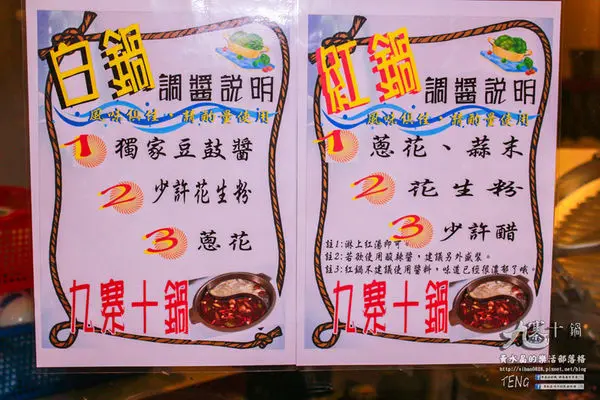 白鍋調醬說明
風味俱佳、請酌量使用
1 獨家豆鼓醬
2 少許花生粉
3 蔥花
九寨十鍋
紅鍋調醬說明
風味俱佳、請酌量使用
1 蔥花、蒜末
2 花生粉
3 少許醋
註1:淋上紅湯即可。
註2:若欲使用酸辣醬,建議另外盛裝。
註3:紅鍋不建議使用醬料,味道已經很濃郁了哦。
九寨十鍋
九寨十鍋
黃水晶的樂活部落格
TENG